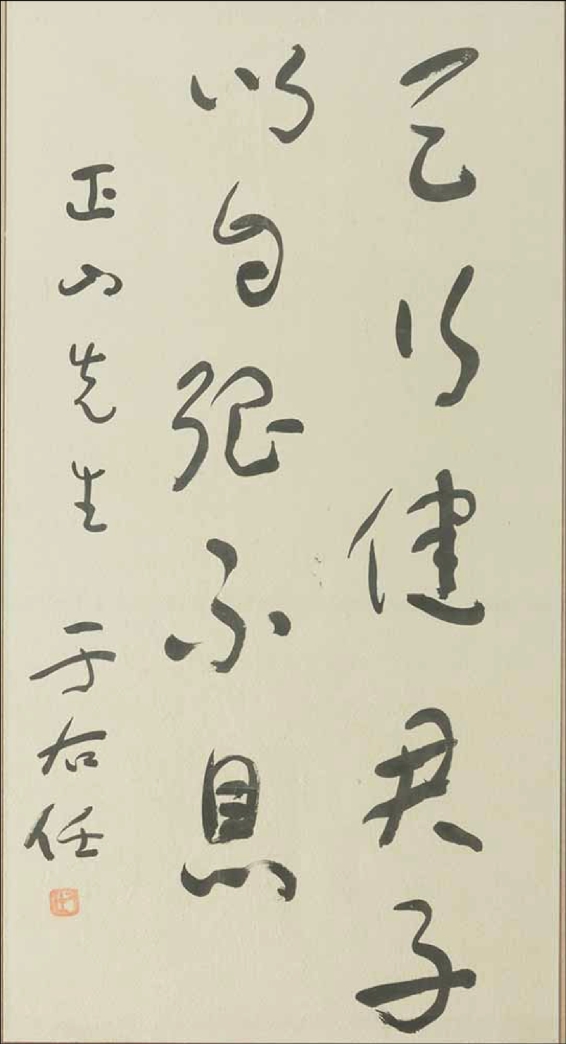 天行健君子
以自强不息
正山先生 于右任